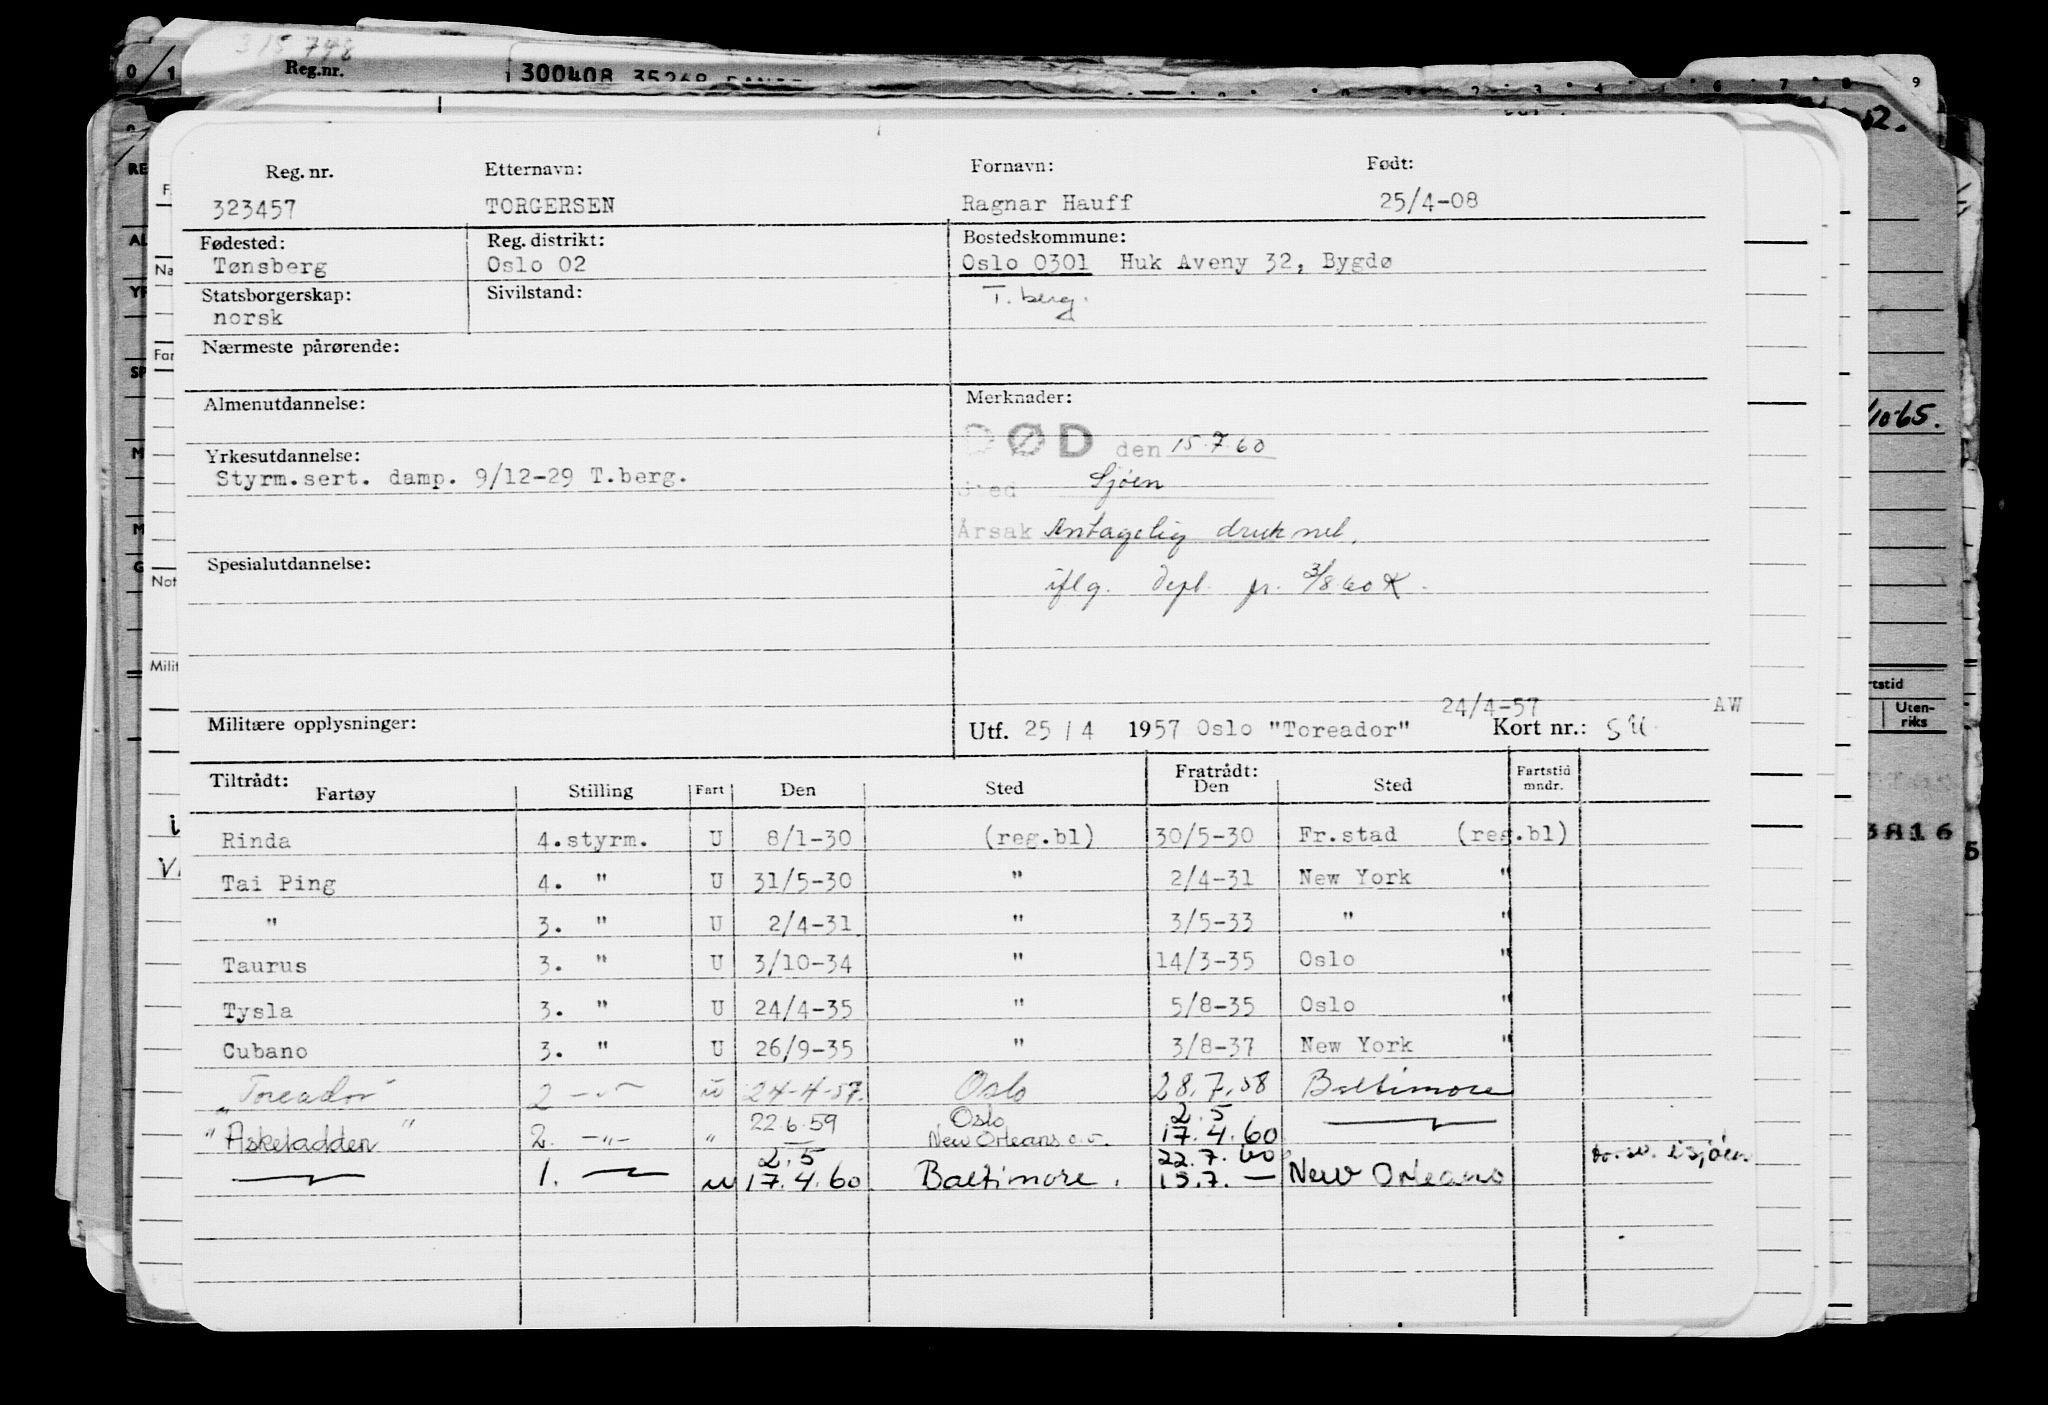 315 798
Reg.nr.
300408 35268
Reg. nr. Etternavn: Fornavn: Født:
323457 TORGERSEN Ragnar Hauff 25/4-08
Fødested: Reg. distrikt: Bostedskommune:
Tønsberg Oslo 02 Oslo 0301 Huk Aveny 32, Bygdø
Statsborgerskap: Sivilstand: T. berg.
norsk
Nærmeste pårørende:
Almenutdannelse: Merknader:
DØD den 15.7.60
Yrkesutdannelse:
Styrm.sert. damp. 9/12-29 T.berg.
Sted Sjøen
Årsak Antagelig druknet,
Spesialutdannelse:
iflg. Depl. fr. 3/8.60 K.
24/4-57 AW
Militære opplysninger: Utf. 25 / 4 1957 Oslo "Toreador" Kort nr.: SU
Tiltrådt: Fratrådt:
Fartøy Stilling Fart Den Sted Den Sted Fartstid mndr.
Rinda 4.styrm. U 8/1-30 (reg.bl) 30/5-30 Fr.stad (reg.bl)
Tai Ping 4. " U 31/5-30 " 2/4-31 New York "
" 3. " U 2/4-31 " 3/5-33 " "
Taurus 3. " U 3/10-34 " 14/3-35 Oslo "
Tysla 3. " U 24/4-35 " 5/8-35 Oslo "
Cubano 3. " U 26/9-35 " 3/8-37 New York "
"Toreador" 2 -"- u 24-4-57. Oslo 28.7.58 Baltimore
22.6.59 Oslo 2.5
"Askeladden" 2. -"- " New Orleans o.v. 17.4.60
2.5 22.7.60 i sjøen
1. u 17.4.60 Baltimore. 15.7. — New Orleans
52.
10-65.
rtstid
Uten-
riks
3816